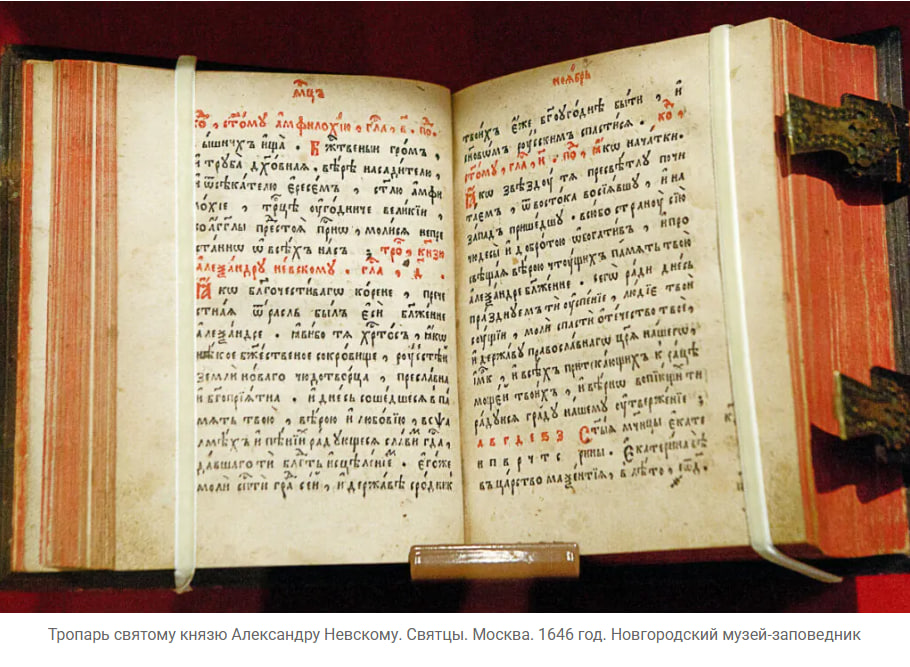 мцъ
ко, ст҃ому амфилохїю, гла, в҃. по,
вышнихъ ища . Бж҃твеныи громъ ,
и труба дх҃овная , вѣрѣ насадителю ,
и ѿсѣкателю ересемъ , ст҃лю амфи
лохїе , трц҃е оугодниче великїи ,
со аг҃глы престоя приⷭ҇нѡ , молися непре
станнѡ ѡ всѣхъ насъ . тро, кн҃зю
алеѯандру невскому . гла , д҃ .
Ꙗкѡ бл҃гочестивагѡ корене , прече
стная ѿрасль былъ еси бл҃женне
алеѯандре . ꙗви бо тя хрⷭ҇тосъ , ꙗкѡ
нѣкое бж҃ественое сокровище , роусстѣй
земли новаго чюдотворца , преславна
и бг҃опрїятна . и днесь сошедшеся в па
мять твою , вѣрою и любовїю , во ѱа
лмѣхъ и пѣнїи радующеся славим гд҃а ,
давшаго ти бл҃гть исцѣленїе . Егоже
моли спⷭ҇ти гра сей , и державѣ сродник
ноябрь
твоихъ еже бг҃оугоднѣ быти , и
сн҃овѡмъ роусскимъ спастися . ко ,
ст҃ому , гла , и҃ . по , ꙗкѡ начатки .
Ꙗкѡ звѣздоу тя пресвѣтлу почи
таемъ , ѿ востока восїявшу , и на
западъ пришедшу . всю бо страноу сїю
чюдесы и добротою ѡбогативъ , и про
свѣщая вѣрою чтоущихъ память твою
алеѯандре блаженне . сего ради днесь
празднуемъ ти оуспенїе , людїе твои
соущїи , моли спасти отечество твое ,
и державу православнагѡ цр҃я нашегѡ ,
имк , и всѣхъ притекающихъ к рацѣ
мощей твоихъ , и вѣрнѡ вопїющи ти
радуися граду нашему оутвержение ;
а в г д е в з Ст҃ыя мч҃ницы екате
и п в р ч т с рины . Екатерина бѣ
въ царство маѯентїя , в лѣто ,
Тропарь святому князю Александру Невскому. Святцы. Москва. 1646 год. Новгородский музей-заповедник